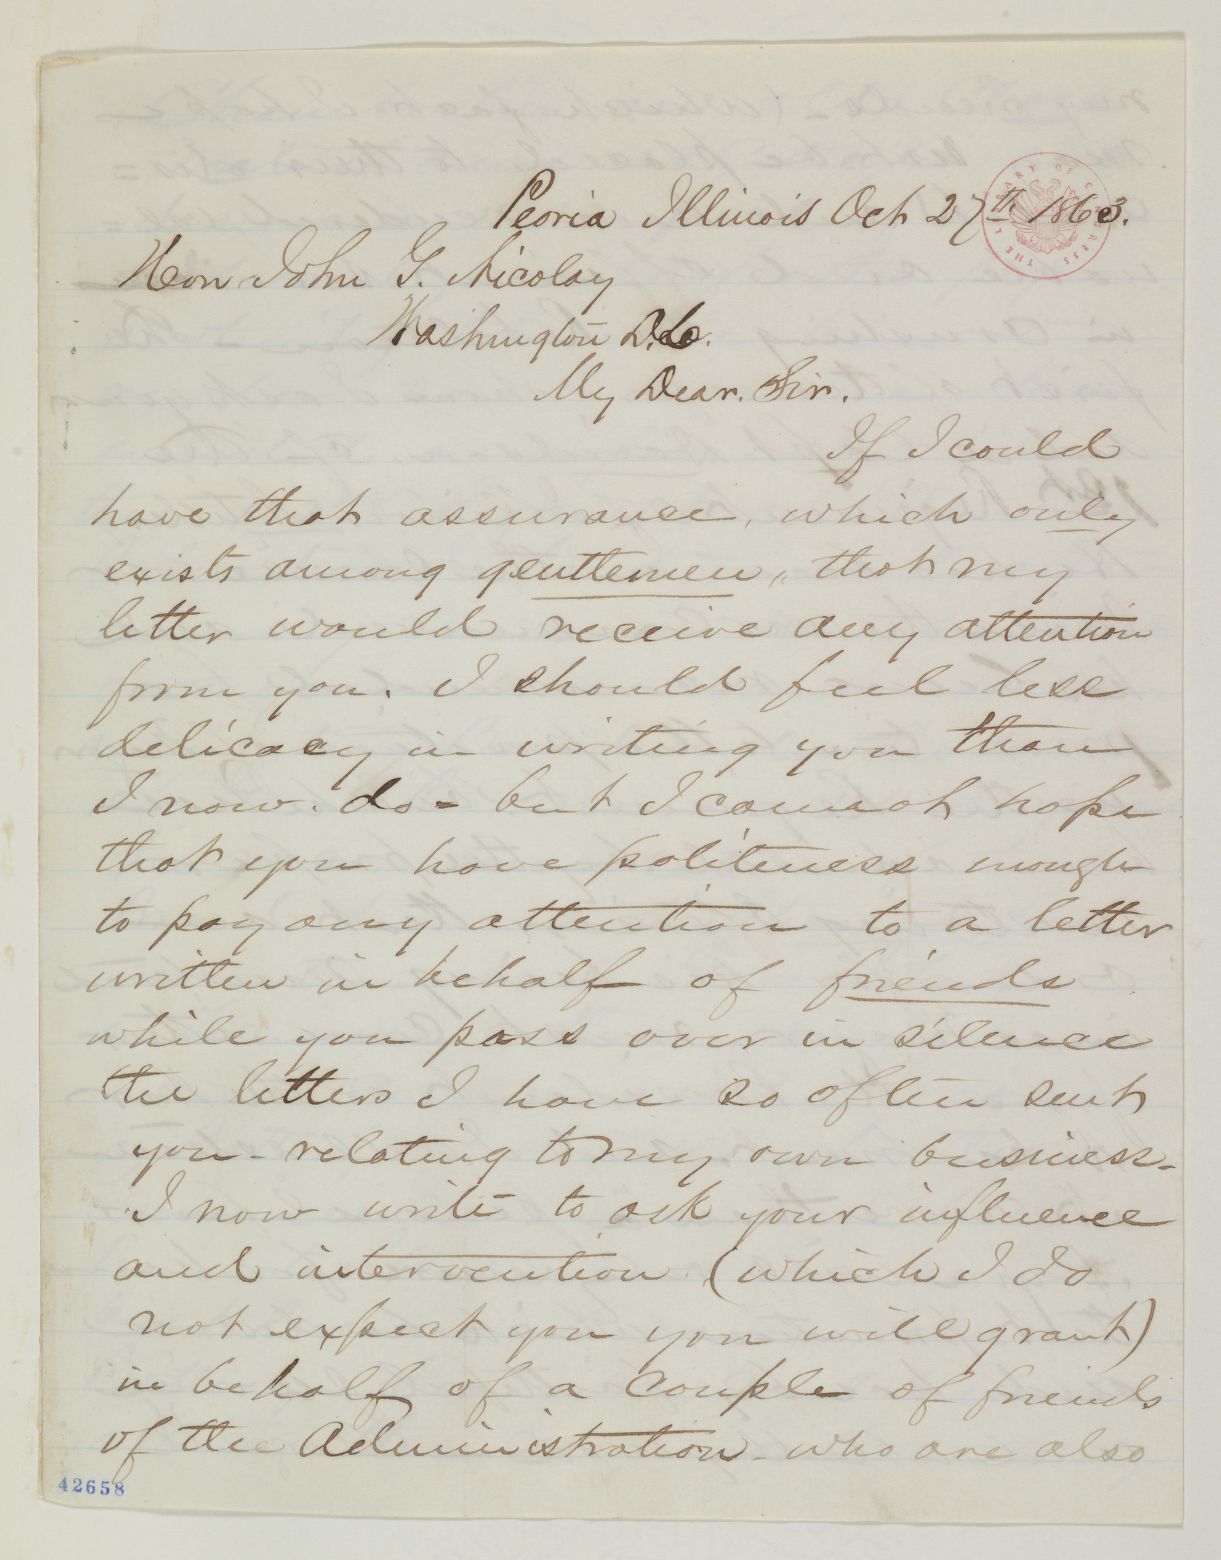 Peoria Illinois Oct 27th 1863.
Hon John G. Nicolay
Washington D.C.
My Dear. Sir.
If I could
have that assurance, which only
exists among gentlemen, that my
letter would receive any attention
from you. I should feel less
delicacy in writing you than
I now. do - but I cannot hope
that you have politeness enough
to pay any attention to a letter
written in behalf of friends
while you pass over in silence
the letters I have so often sent
you - relating to my own business -
I now write to ask your influence
and intervention (which I do
not expect you you will grant)
in behalf of a couple of friends
of the Administration - who are also
42658
THE LIBRARY OF CONGRESS